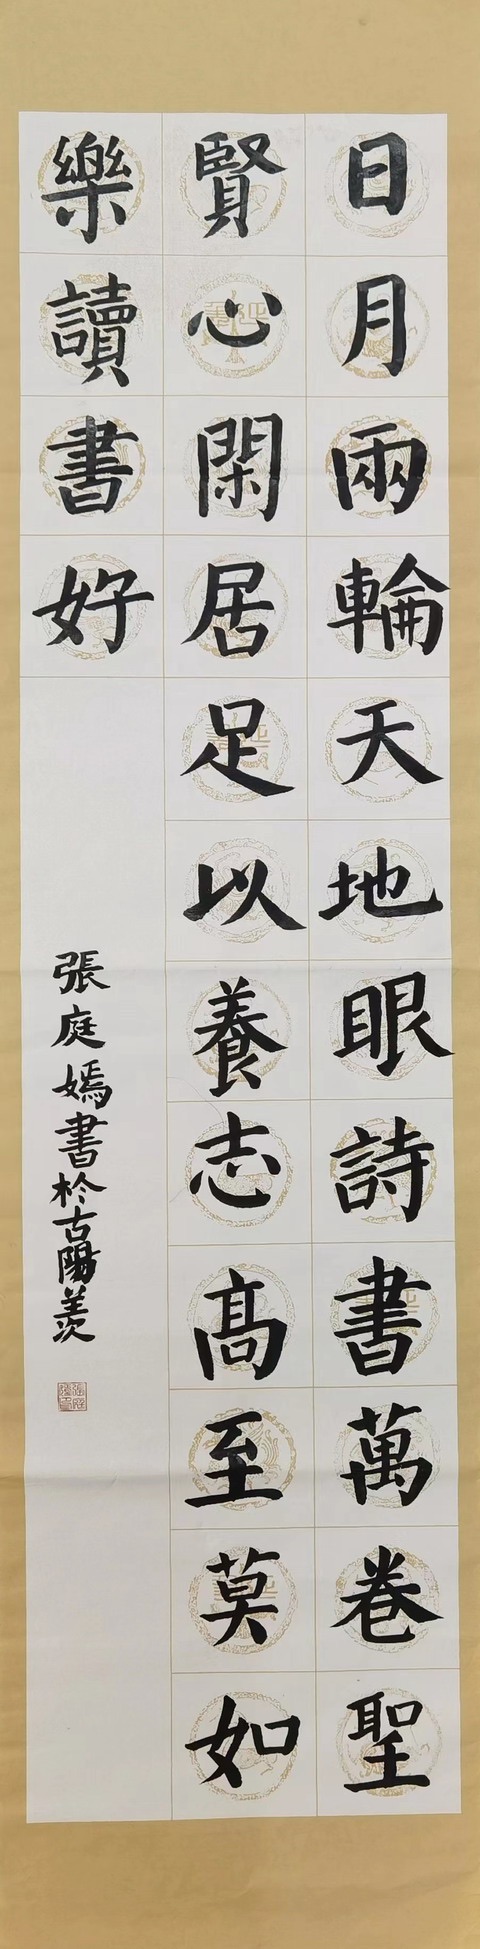 日月兩輪天地眼詩書萬卷聖
賢心閑居足以養志高至莫如
樂讀書好
張庭嫣書於古陽羨